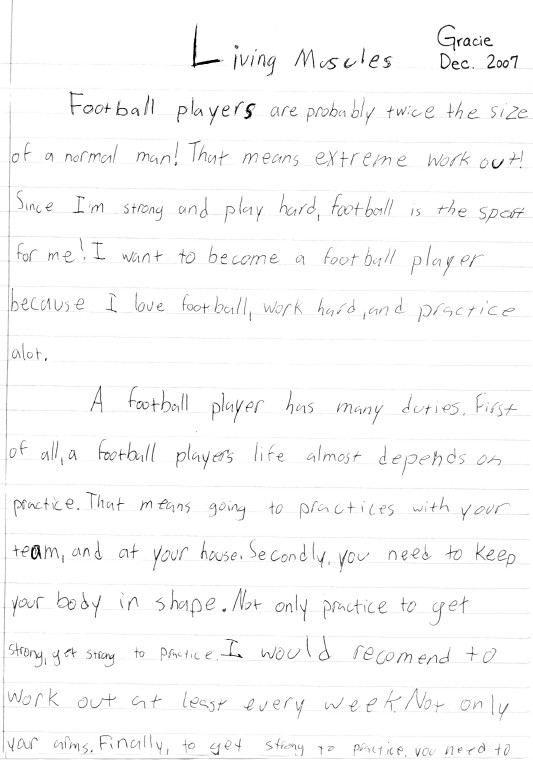 Living Muscles
Gracie
Dec. 2007
Football players are probably twice the size
of a normal man! That means extreme work out!
Since I'm strong and play hard, football is the sport
for me! I want to become a football player
because I love football, work hard, and practice
alot.
A football player has many duties. First
of all, a football players life almost depends on
practice. That means going to practices with your
team, and at your house. Secondly, you need to keep
your body in shape. Not only practice to get
strong, get strong to practice. I would recomend to
work out at least every week. Not only
your arms. Finally, to get strong to practice, you need to